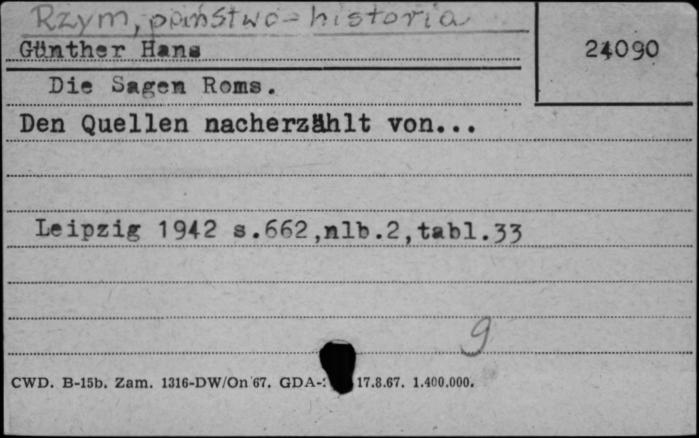 Rzym, państwo - historia
Günther Hans
24090
Die Sagen Roms.
Den Quellen nacherzählt von...
Leipzig 1942 s.662,nlb.2,tabl.33
9
CWD. B-15b. Zam. 1316-DW/On 67. GDA- 17.8.67. 1.400.000.